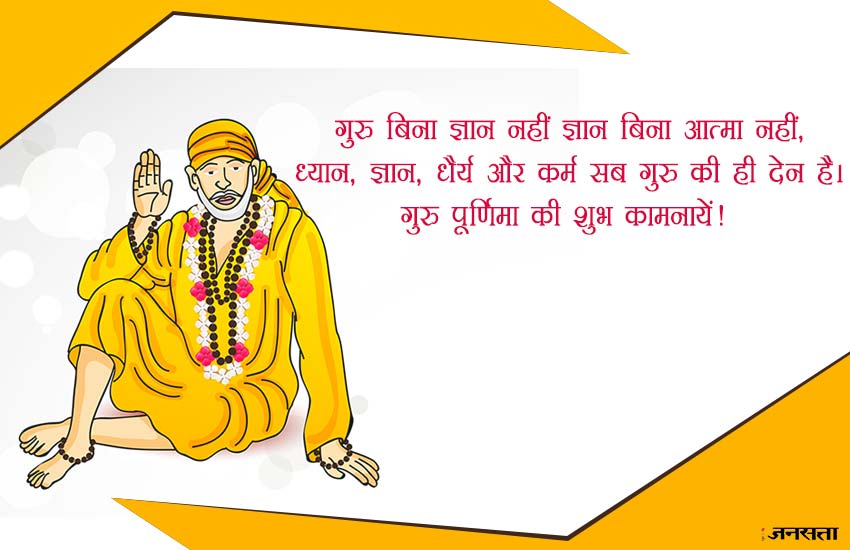 गुरु बिना ज्ञान नहीं ज्ञान बिना आत्मा नहीं,
ध्यान, ज्ञान, धैर्य और कर्म सब गुरु की ही देन है।
गुरु पूर्णिमा की शुभ कामनायें!
जनसत्ता